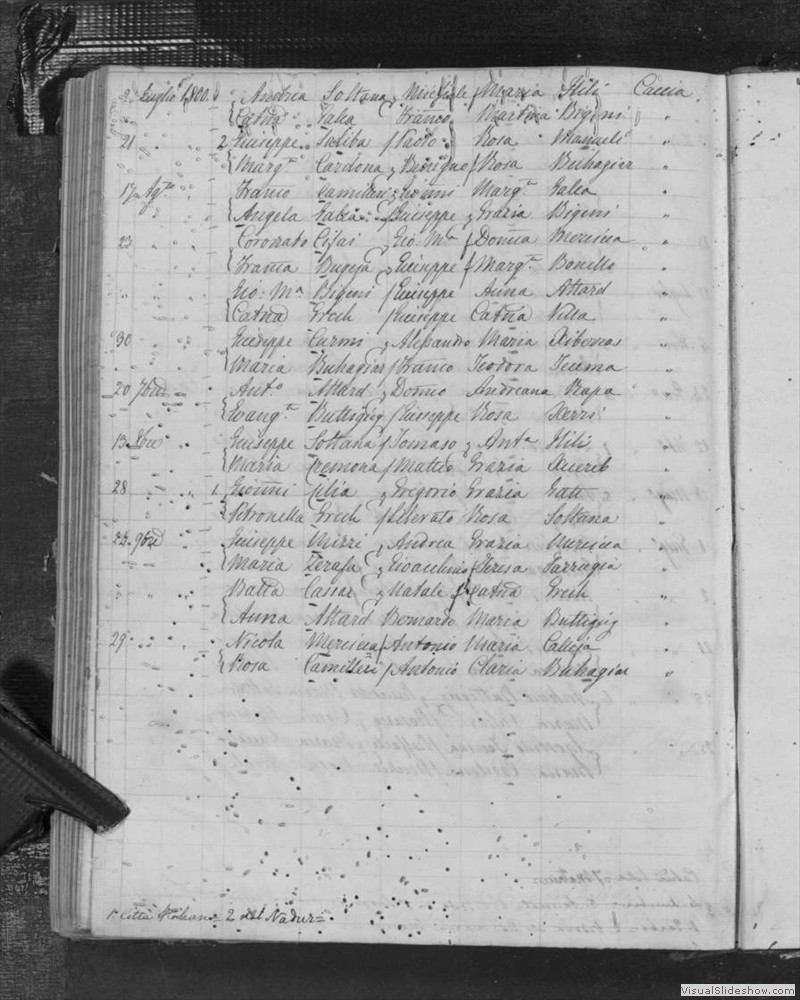 9 Luglio 1800. Andrea Soltana Michele Maria Hili Caccia
Catna Galea Franco Martina Bigeni "
21 " " 2 Giuseppe Saliba Paolo Rosa Manueli "
Margta Cardona Benigno Rosa Buhagier "
17 Agto Franco Camilleri Gioñni Margta Galea "
Angela Galea Giuseppe Grazia Bigeni "
23 " " Coronato Gio: Ma Donna Mercieca "
Franca Bugeja Giuseppe Margta Bonello "
" " " Gio: Ma Bigeni Giuseppe Anna Attard "
Catna Grech Giuseppe Catna Vella "
30 " " Giuseppe Curmi Alessandro Maria Xiberras "
Maria Buhagiar Franco Teodora Teuma "
20 7bre Anto Attard Andreana Rapa "
Evangta Buttigieg Giuseppe Rosa Xerri "
13 Xbre Giuseppe Soltana Tomaso Anta Hili "
Maria Cremona Matteo Grazia Xuereb "
28 " " 1 Gioñni Cilia Gregorio Grazia Gatt "
Petronella Grech Liberato Rosa Soltana "
22 9bre Giuseppe Mizzi Andrea Grazia Mercieca "
Maria Zerafa Gioacchino Teresa Farrugia "
" " " Batta Cassar Natale Catna Grech "
Anna Attard Bernardo Maria Buttigieg "
29 " " Nicola Mercieca Antonio Maria Calleja "
Rosa Camilleri Antonio Claria Buhagiar "
1. Città 2 del Nadur=
VisualSlideshow.com